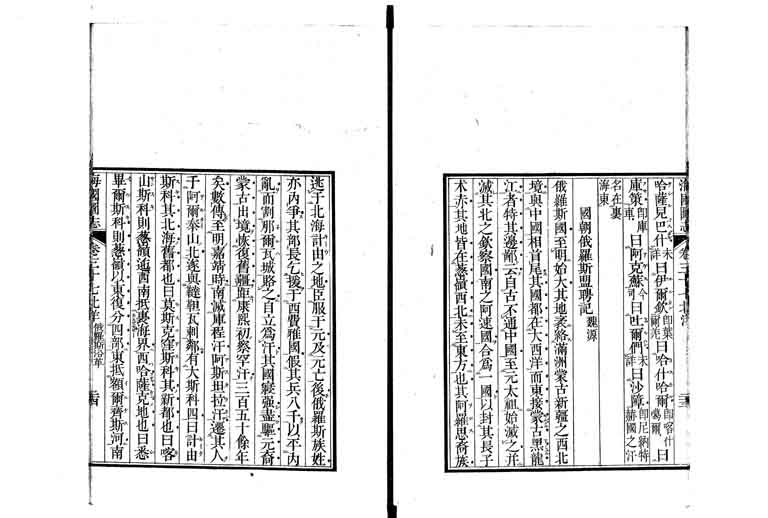 哈薩兒巴什未詳曰伊爾欽即葉爾羌曰哈什哈爾即喀什噶爾曰
庫策即庫車曰阿克蘇今曰吐爾們未詳曰沙障即尼納特赫國之汗
名在裏海東
國朝俄羅斯盟聘記 魏源
俄羅斯國至明始大其地袤絡滿洲蒙古新疆之西北
境與中國相首尾其國都在大西洋而東接蒙古黑龍
江者特其邊鄙云自古不通中國至元太祖始滅之并
滅其北之欽察國南之阿速國合爲一國以封其長子
术赤其地皆在葱嶺西北未至東方也其阿羅思裔族
逃于北海計由之地臣服于元及元亡後俄羅斯族姓
亦內爭其部長乞援于西費雅國假其兵八千以平內
亂而割那爾瓦城賂之自立爲汗其國寖强盡驅元裔
蒙古出境恢復舊疆距康熙初察罕汗三百五十餘年
矣數傳至明嘉靖時南滅庫程汗阿斯坦拉汗遷其人
于阿爾泰山北遂與朝瓦剌鄰有大斯科四曰計由
斯科其北海舊都也曰莫斯克窪斯科其新都也曰喀
山斯科則葱嶺迤西南抵裏海界西哈薩克地也曰悉
畢爾斯科則葱嶺以東復分四部東抵額爾齊斯河南
海國圖志 卷三十七北洋 俄羅斯沿革